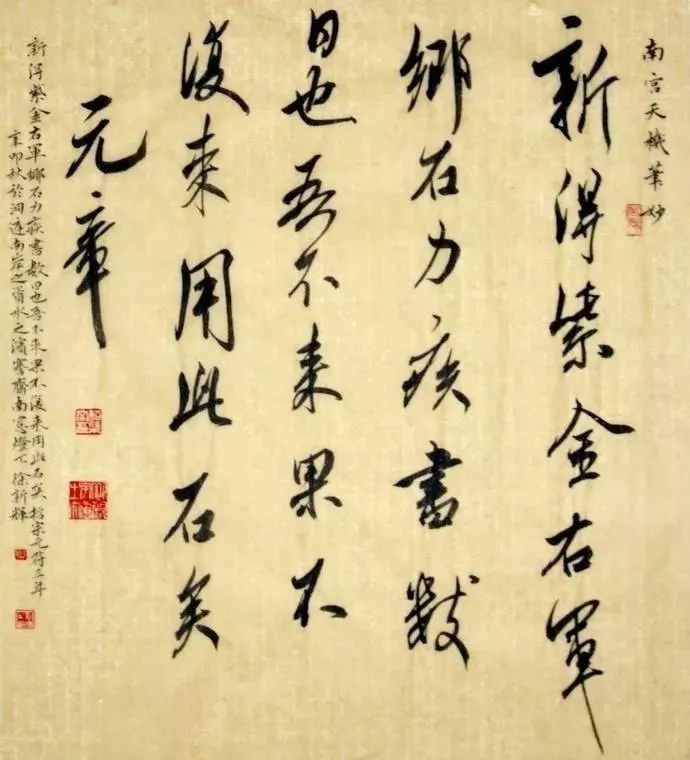 南宫天機筆妙
新得紫金右軍
鄉石力疾書數
日也吾不来果不
復来用此石矣
元章
新得紫金右軍鄉石力疾書數日也吾不来果不復来用此石矣 宋元符三年
辛卯秋於洞庭南岸之資水之濱寒齋南窓燈下 徐新輝